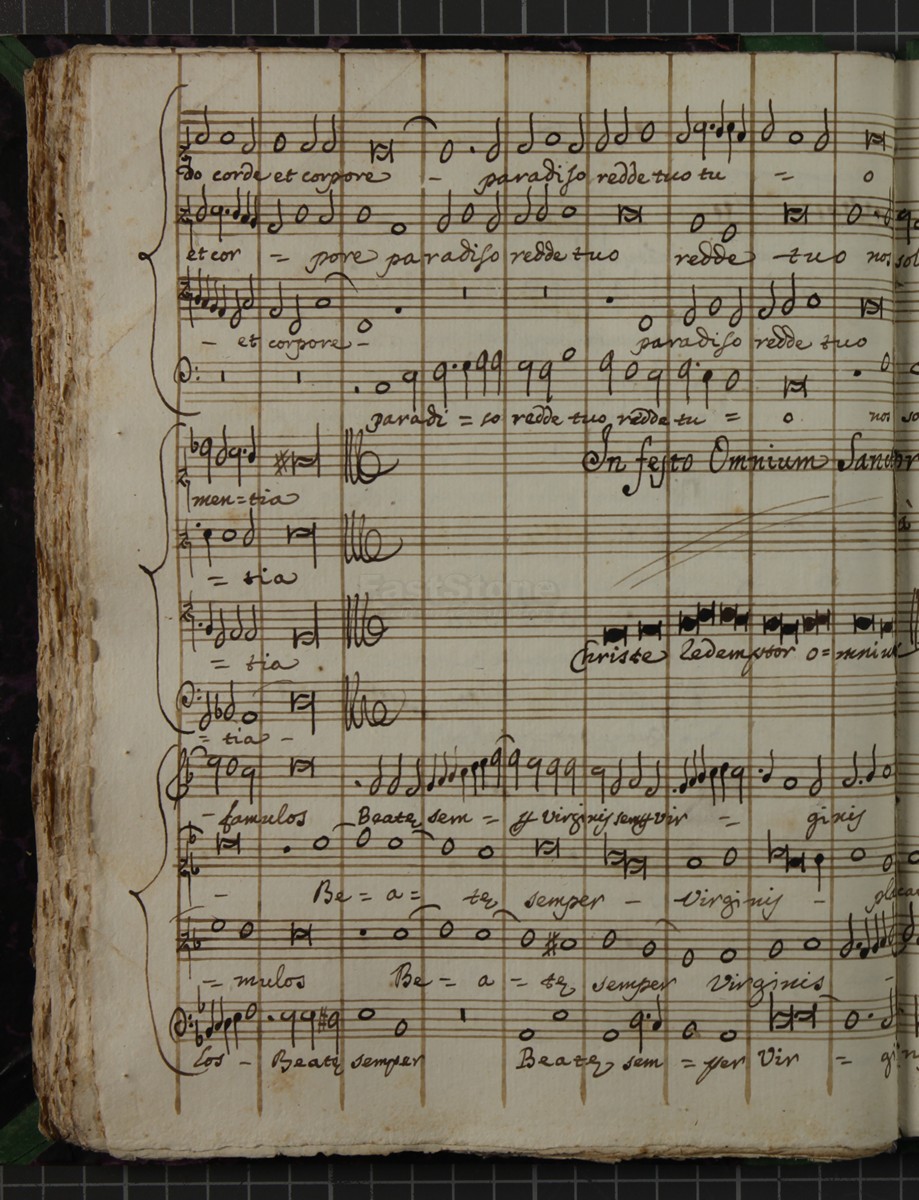 do corde et corpore - paradiso redde tuo tu = o
et cor = pore paradiso redde tuo redde -tuo nos sol
- et corpore - paradiso redde tuo
paradi = so redde tuo redde tu = o nos so
In festo Omnium Sanctor
men=tia
= tia
= tia
Christe Redemptor o=mnium
= tia -
- famulos Beatę sem = Virginis Vir = ginis
- Be = a = tę semper - Virginis - placa
= mulos Be = a = tę semper Virginis -
los - Beatę semper Beatę sem = per Vir = gin